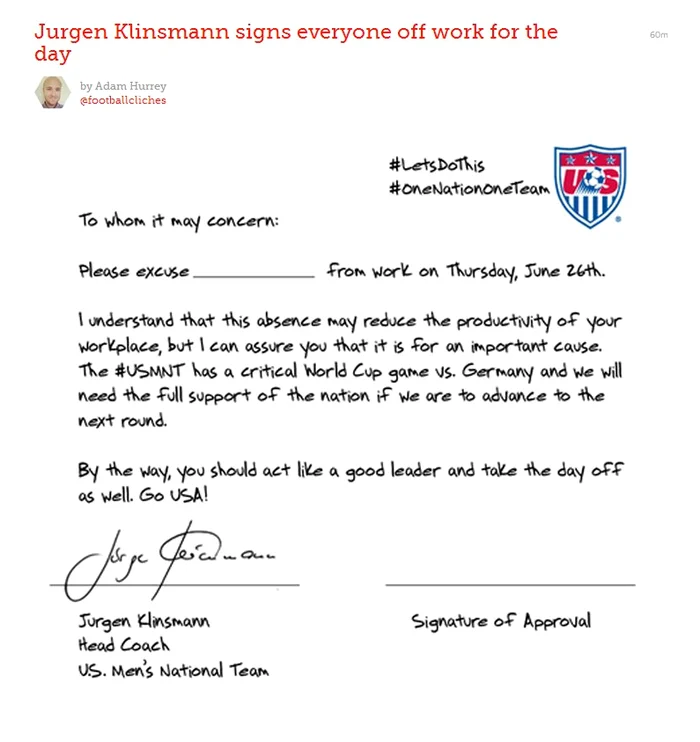 Jurgen Klinsmann signs everyone off work for the
day
60m
by Adam Hurrey
@footballcliches
#LetsDoThis
#OneNationOneTeam
US
®
To whom it may concern:
Please excuse ____________ from work on Thursday, June 26th.
I understand that this absence may reduce the productivity of your
workplace, but I can assure you that it is for an important cause.
The #USMNT has a critical World Cup game vs. Germany and we will
need the full support of the nation if we are to advance to the
next round.
By the way, you should act like a good leader and take the day off
as well. Go USA!
Jurgen Klinsmann
Head Coach
U.S. Men's National Team
Signature of Approval